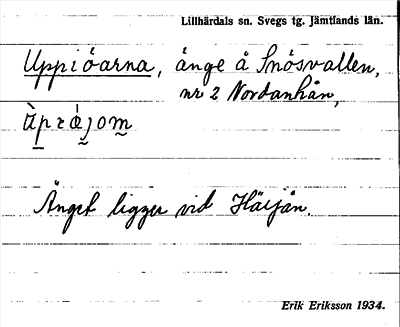 Lillhärdals sn. Svegs tg. Jämtlands län.
Uppiöarna, änge å Snösvallen,
nr 2 Nordanhån,
Änget ligger vid Härjån.
Erik Eriksson 1934.